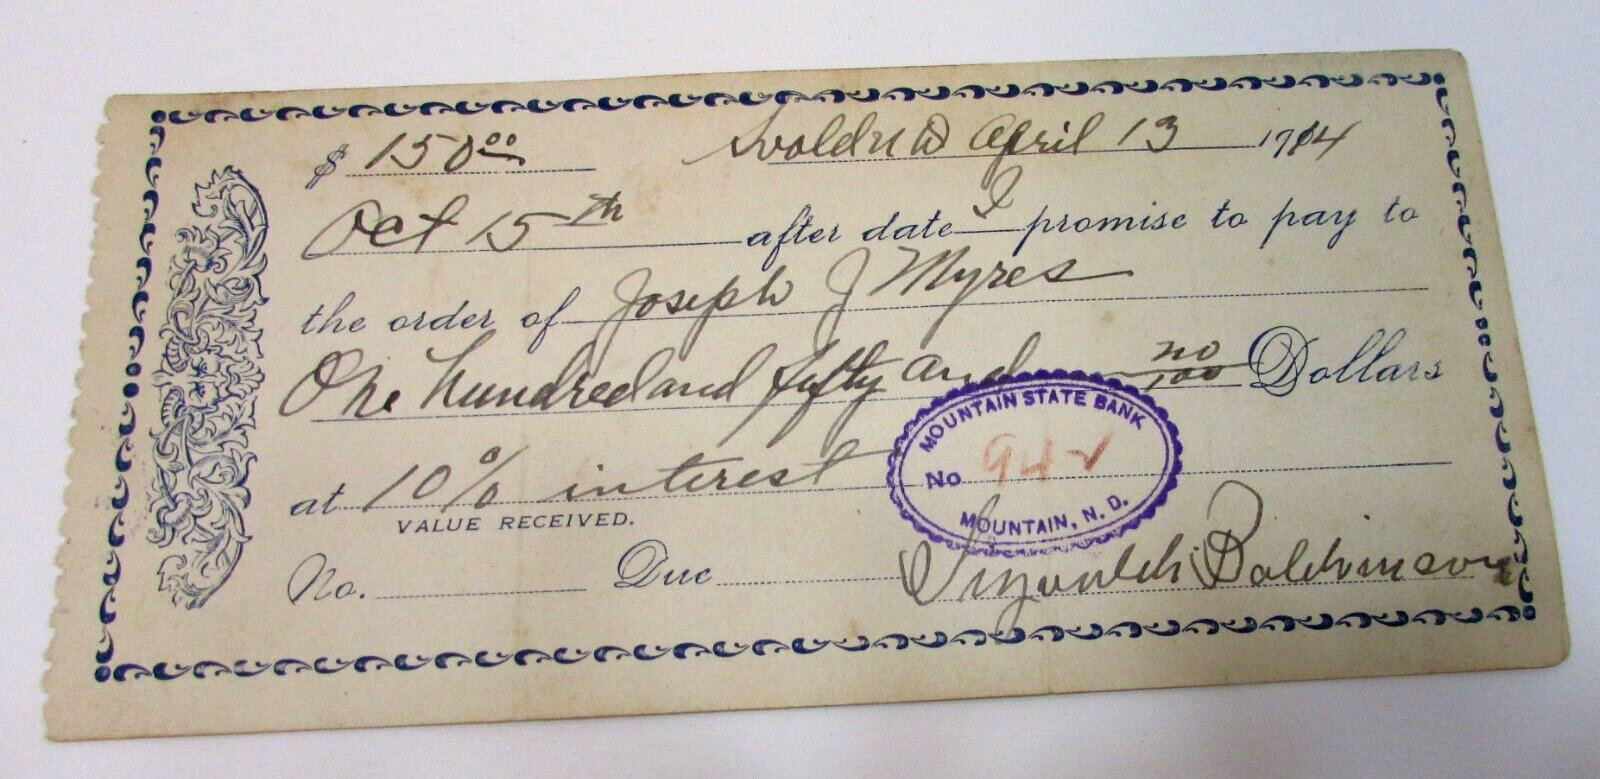 $ 150.00 Svold N D April 13 1914
Oct 15th after date I promise to pay to
the order of Joseph J Myres
One hundred and fifty and no/100 Dollars
at 10% interest
VALUE RECEIVED.
MOUNTAIN STATE BANK
No 942
MOUNTAIN, N. D.
No. Due